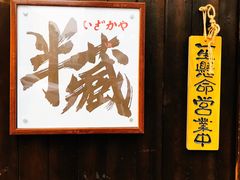 いざかや
半蔵
一生懸命営業中